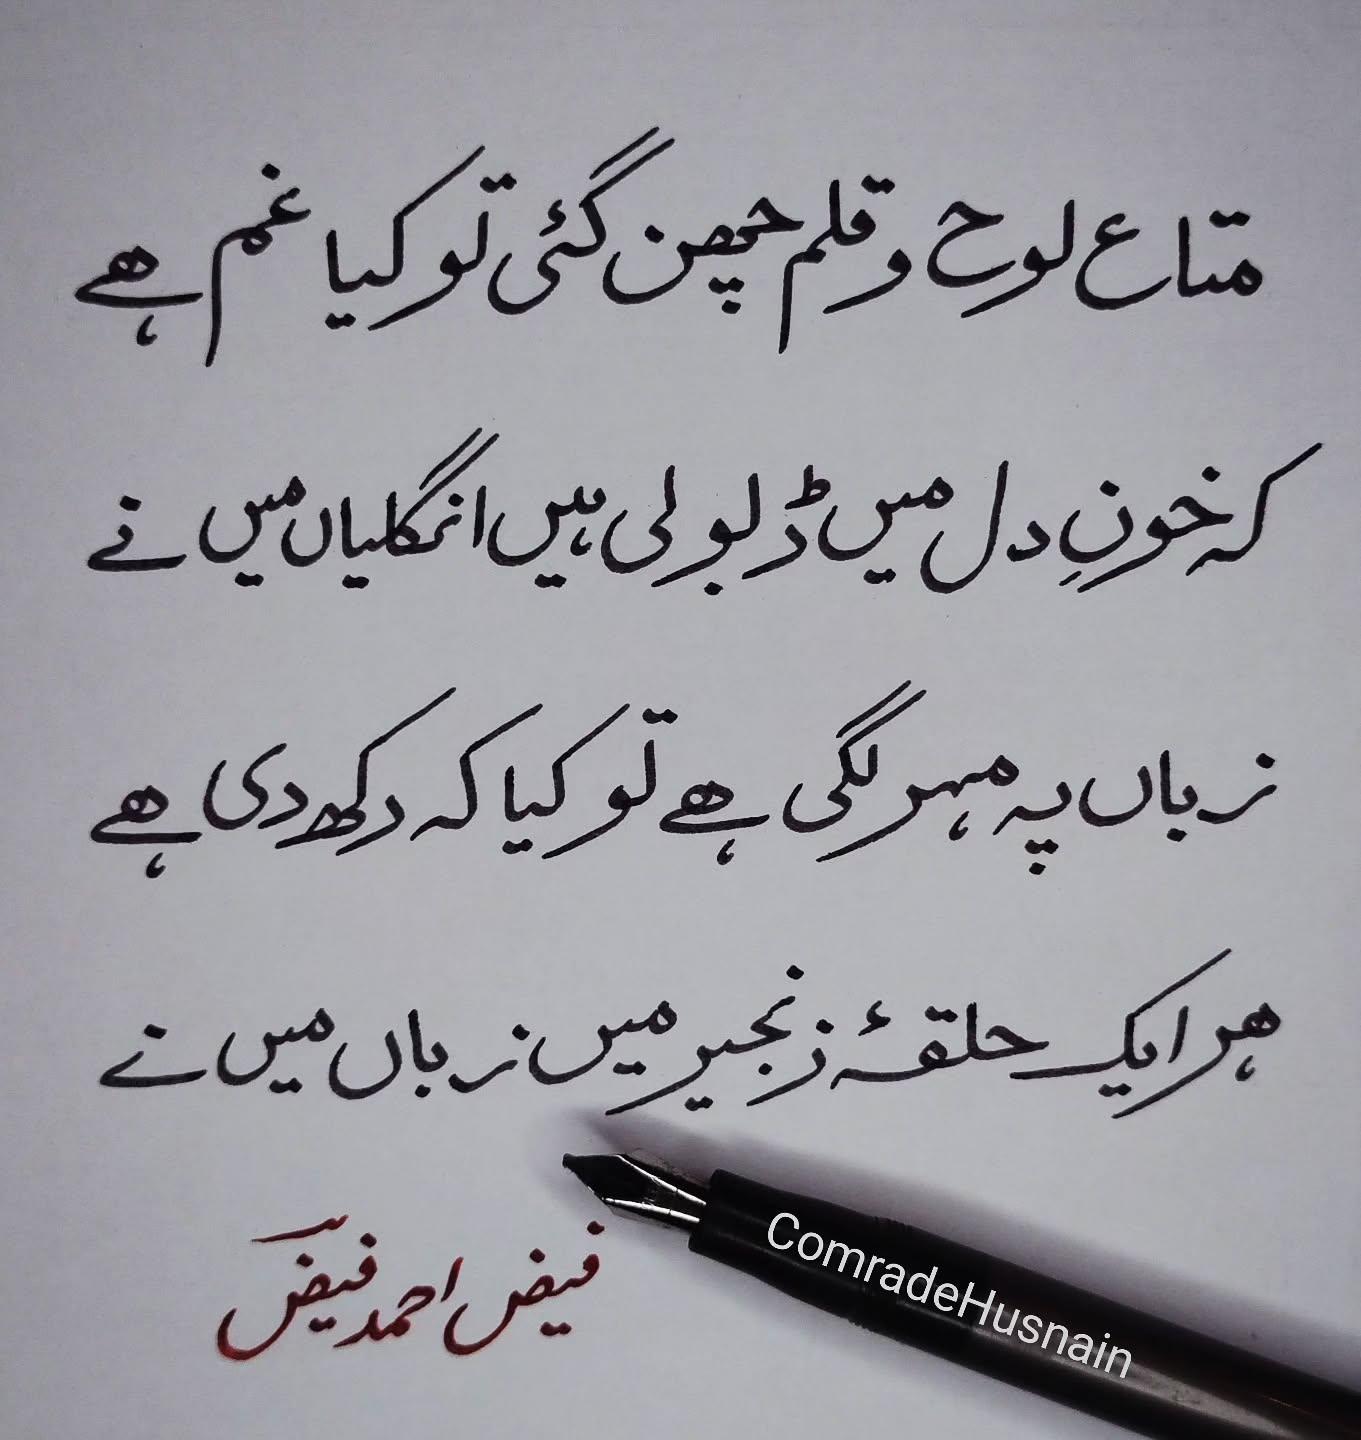 متاع لوح و قلم چھن گئی تو کیا غم ہے
کہ خونِ دل میں ڈبو لی ہیں انگلیاں میں نے
زباں پہ مہر لگی ہے تو کیا کہ رکھ دی ہے
ہر ایک حلقۂ زنجیر میں زباں میں نے
فیض احمد فیضؔ
ComradeHusnain